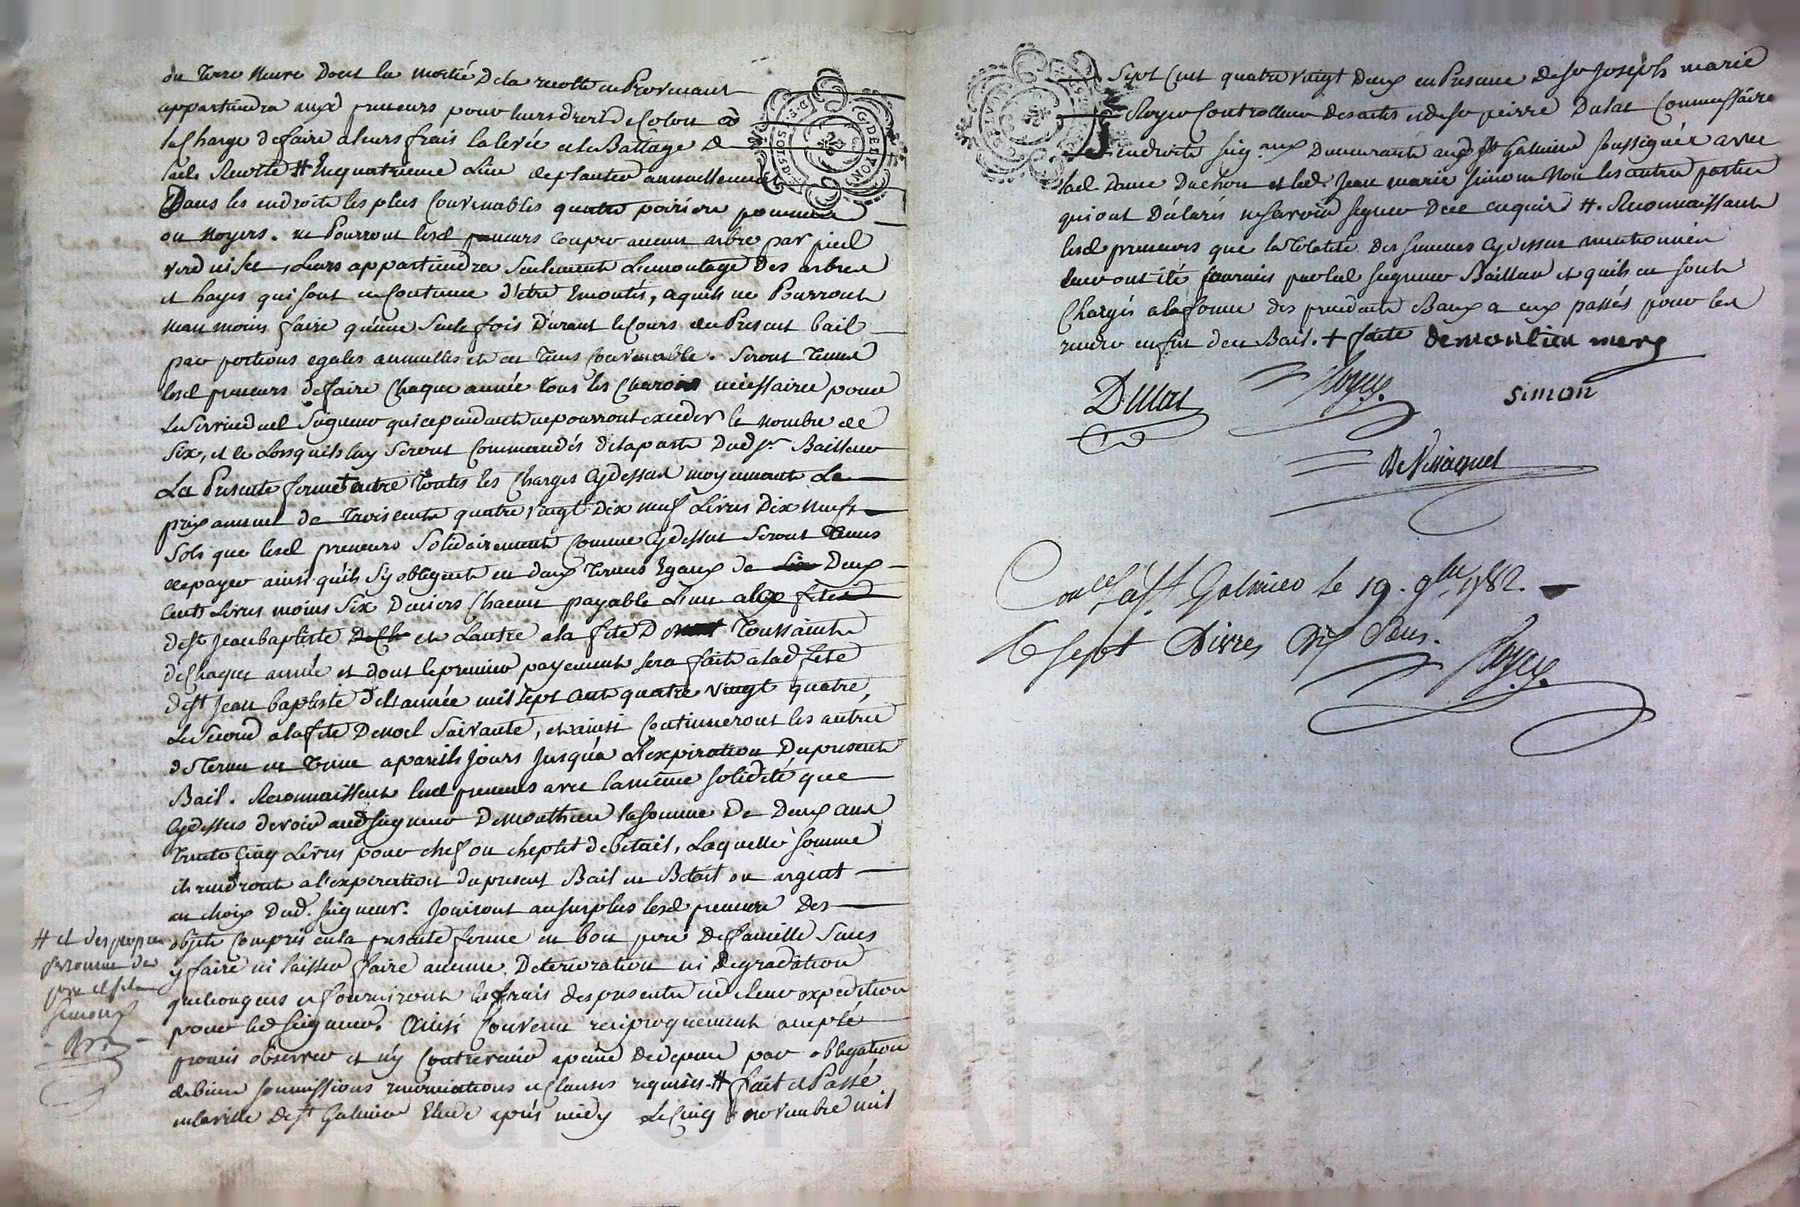 ou Terre Neuve Dont la moitié De la recolte en Provenant
appartiendra auxd preneurs pour leurs droits de Colon à
la Charge de faire a leurs frais la levée et le Battage de
lad. Recolte # En quatrieme Lieu de planter annuellement
Dans les endroits les plus Convenables quatre poiriers pommiers
ou Noyers. ne Pourront lesd preneurs couper aucun arbre par pied
verd ni sec, Leurs appartiendra Seulement L'emontage Des arbres
et hayes qui sont en Coutume d'être Emontés, a quils ne Pourront
neanmoins faire qu'une Seule fois Durant le Cours du Present bail
par portions egales annuelles et en tems Convenable. Seront Tenus
lesd preneurs de faire Chaque année tous les Charois nécessaires pour
le Service dud Seigneur qui cependant ne pourront exceder le Nombre de
Six, et ce Lorsquils luy Seront Commandés de la part Dud Sr. Bailleur
La Presente ferme outre Toutes les Charges Cydessus moyennant Le
prix annuel de Trois cents quatre vingt Dix neuf Livres Dix Neuf
Sols que lesd preneurs Solidairement Comme Cydessus Seront Tenus
de payer ainsi quils s'y obligent en deux Termes Egaux de Deux
Cents Livres moins Six Deniers Chacun payable L'un a la fête
de St Jean baptiste et Lautre a la fete De Toussaints
de Chaque année et dont le premier payement sera fait a lad fete
de St Jean baptiste de L'année mil sept cent quatre vingt quatre,
Le Second a la fete De noel Suivante, et ainsi Continueront les autres
de Terme en Terme a pareils Jours Jusqu'a L'expiration Du present
Bail. Reconnaissent lesd preneurs avec la même solidité que
Cydessus devoir aud Seigneur Demonthieu la Somme De Deux cent
Trente Cinq Livres pour chef ou cheptel de betail, Laquelle Somme
ils rendront a l'expiration du present Bail en Betail ou argent
au choix Dud. Seigneur. Jouiront au surplus lesd preneurs Des
objets Compris en la presente ferme en bon pere De famille Sans
y faire ni laisser faire aucune Deterioration ni Degradation
quelconques et fourniront les frais des presentes et d'une expedition
pour led Seigneur. Ainsi Convenu reciproquement accepté
promis observer et n'y Contrevenir a peine De depens par obligation
de biens Soumissions renonciations et Clauses requises. # fait et Passé
en la ville de St Galmier Etude après midy Le Cinq novembre mil
# et des propres
personne des
pere et fils
Simon
Sept Cent quatre vingt Deux en Presence de Sr Joseph marie
Royer Controlleur des actes et de Sr pierre Dulac Commissaire
en droits Seig.aux Demeurants aud St Galmier Soussignés avec
lad Dame Duchon et led. Jean marie Simon Non les autres parties
qui ont Déclarés ne Savoir Signer De ce enquis #. Reconnaissant
lesd preneurs que la totalité des Semences Cydessus mentionnées
leur ont été fournies par led Seigneur Bailleur et quils en sont
Chargés a la forme des precedents Baux a eux passés pour les
rendre en fin de ce Bail. + faite demontieu mery
Dulac Royer simon
DeVissaguet
Conlé a St Galmier le 19. 9bre 1782.
R sept Livres Dix Sous.
Royer